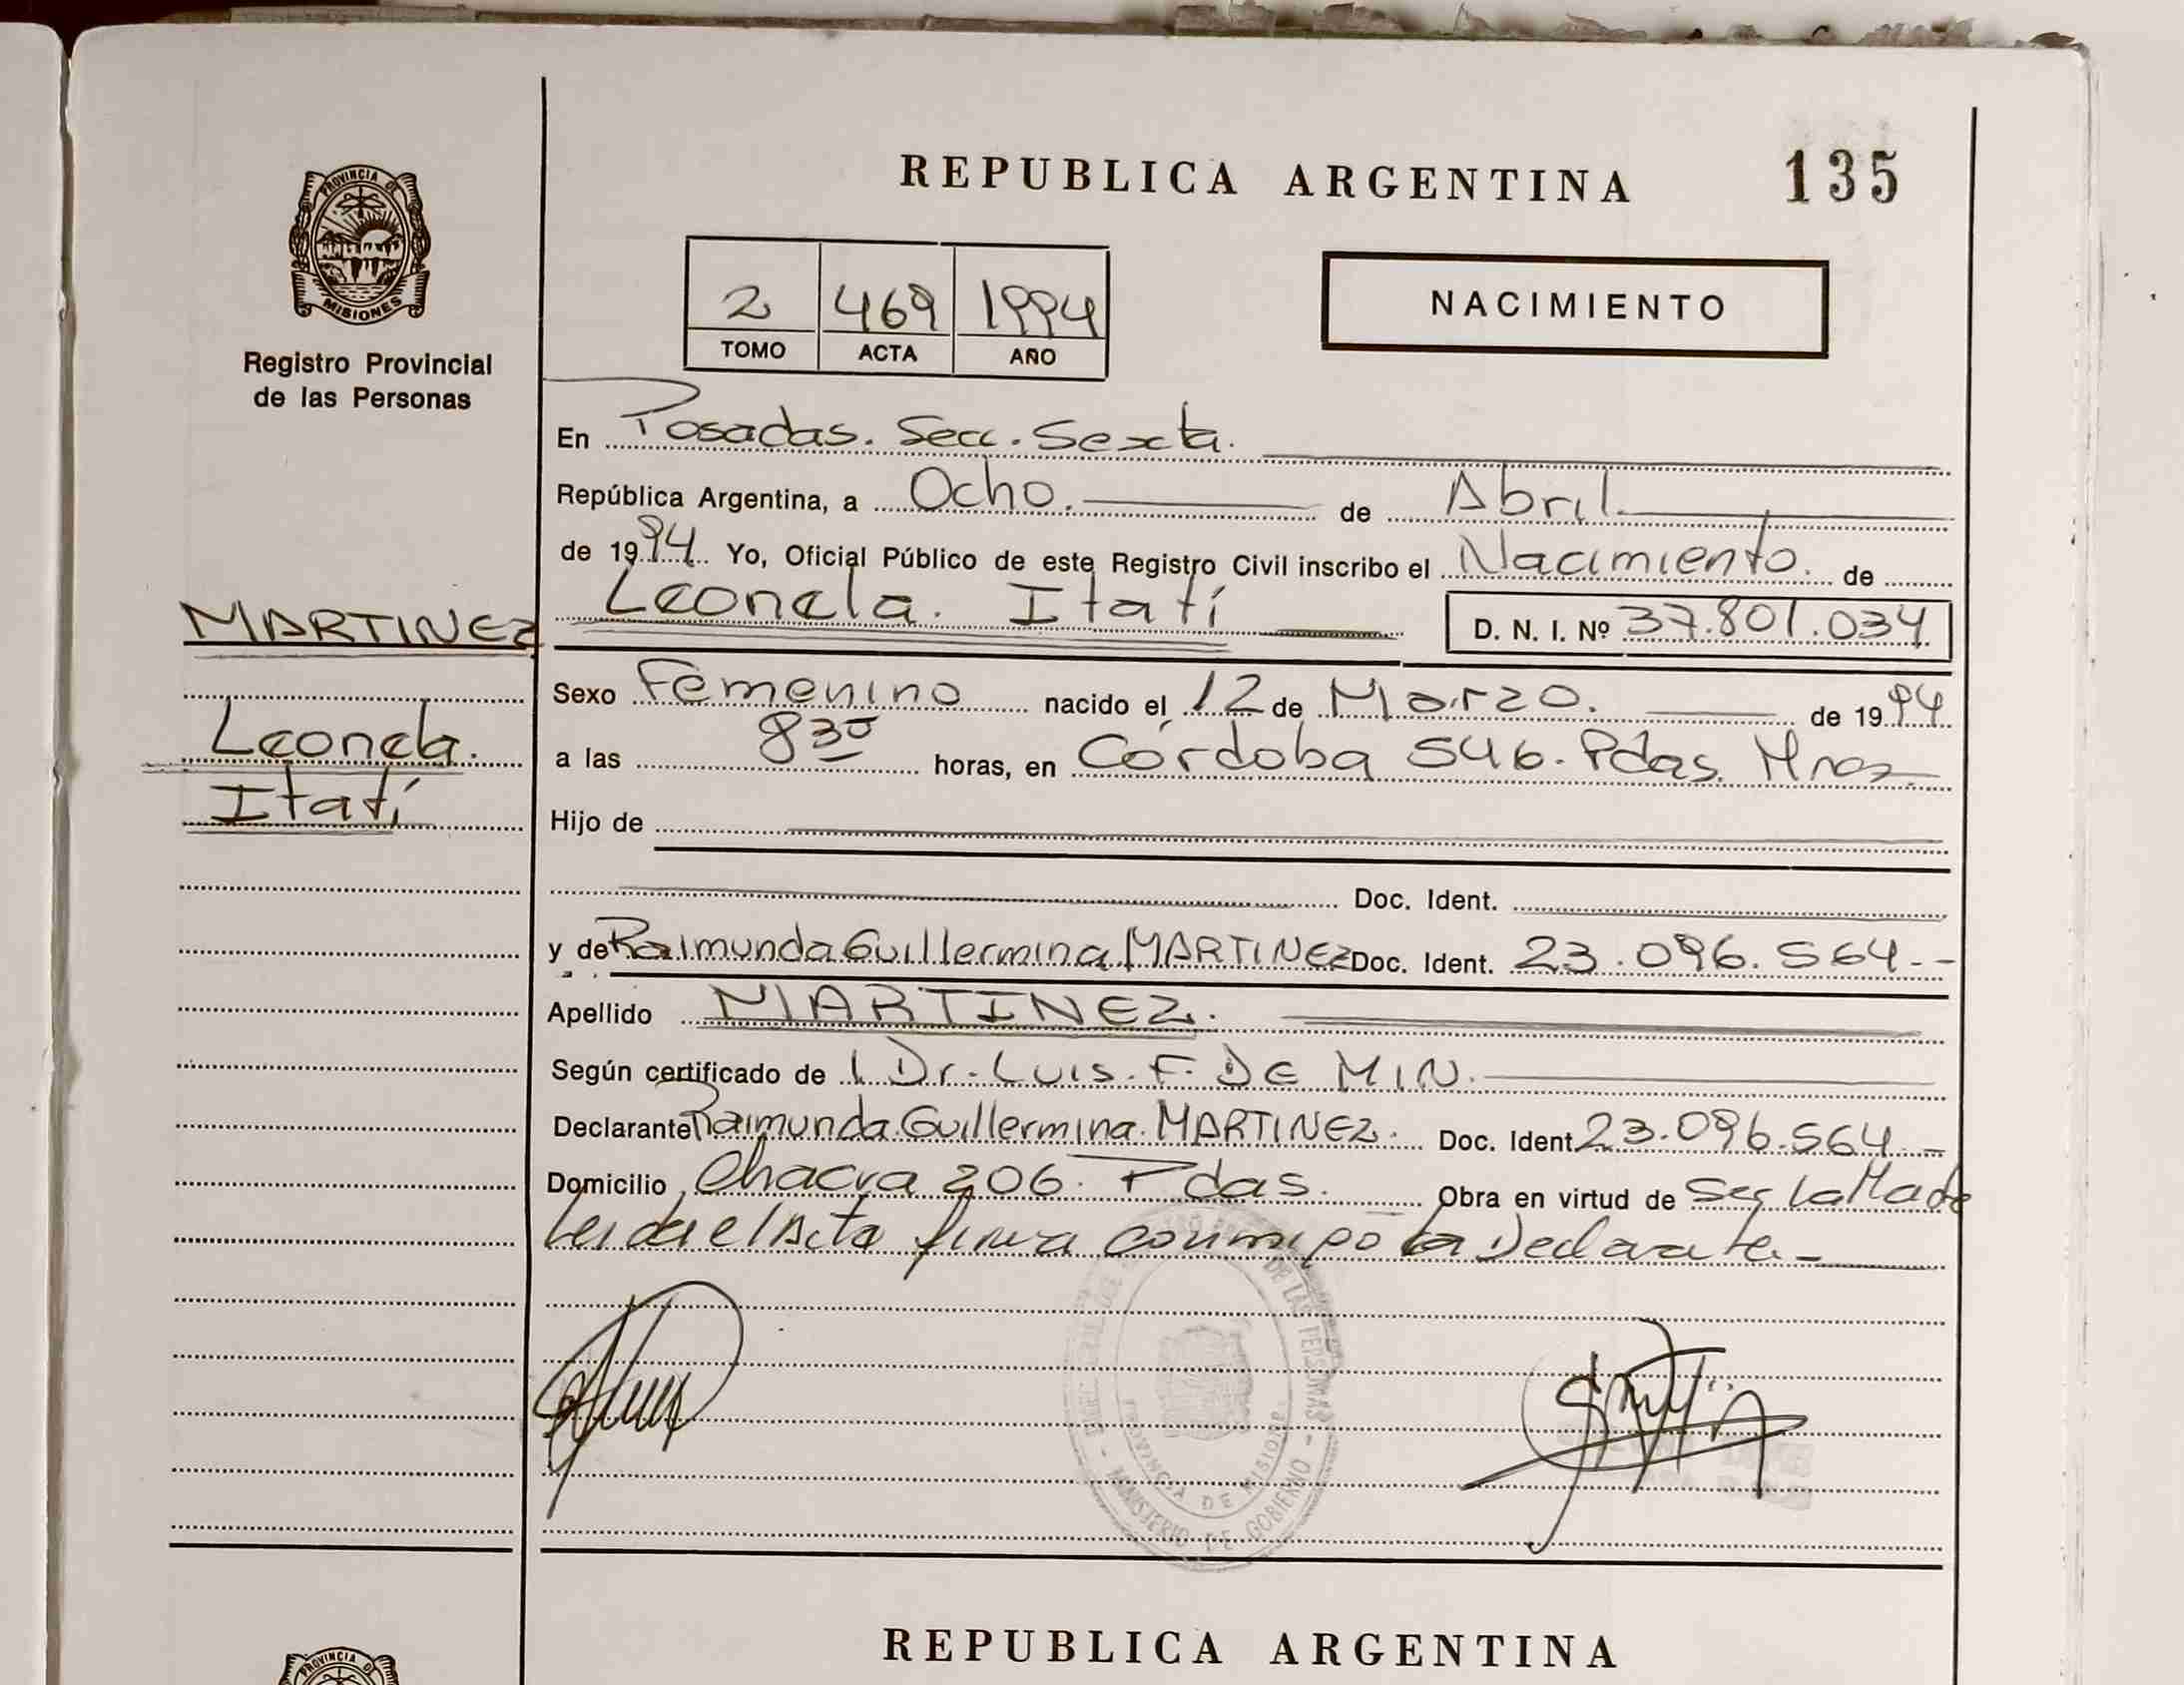 REPUBLICA ARGENTINA 135
PROVINCIA DE
MISIONES
Registro Provincial
de las Personas
2 469 1994
TOMO ACTA AÑO
NACIMIENTO
En Posadas. Secc. Sexta.
República Argentina, a Ocho. de Abril
de 1994 Yo, Oficial Público de este Registro Civil inscribo el Nacimiento. de
MARTINEZ
Leonela. Itatí D. N. I. Nº 37.801.034
Leonela.
Itatí
Sexo Femenino nacido el 12 de Marzo. de 1994
a las 8 30 horas, en Córdoba 546. Pdas. Mnes.
Hijo de
Doc. Ident.
y de Raimunda Guillermina MARTINEZ Doc. Ident. 23.096.564.--
Apellido MARTINEZ.
Según certificado de l Dr. Luis. F. DE MIN.
Declarante Raimunda Guillermina. MARTINEZ. Doc. Ident 23.096.564.--
Domicilio Chacra 206. Pdas. Obra en virtud de ser la Madre
Leida el Acta firma conmigo la Declarante.-
DE LAS PERSONAS - MINISTERIO DE GOBIERNO -
PROVINCIA DE MISIONES
REPUBLICA ARGENTINA
PROVINCIA DE